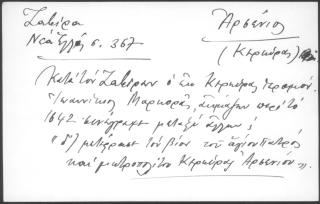 Ζαβίρα
Νέα Ἑλλάς σ. 367
Ἀρσένιος
(Κερκύρας)
Κατὰ τὸν Ζαβίραν ὁ ἐκ Κερκύρας ἱερομόν.
Ἰωαννίκιος Μαρκορᾶς, ἀκμάζων περὶ τὸ
1642 συνέγραψε μεταξὺ ἄλλων
μετέφρασε τὸν βίον τοῦ ἁγίου Πατρὸς
καὶ μητροπολίτου Κερκύρας Ἀρσενίου».